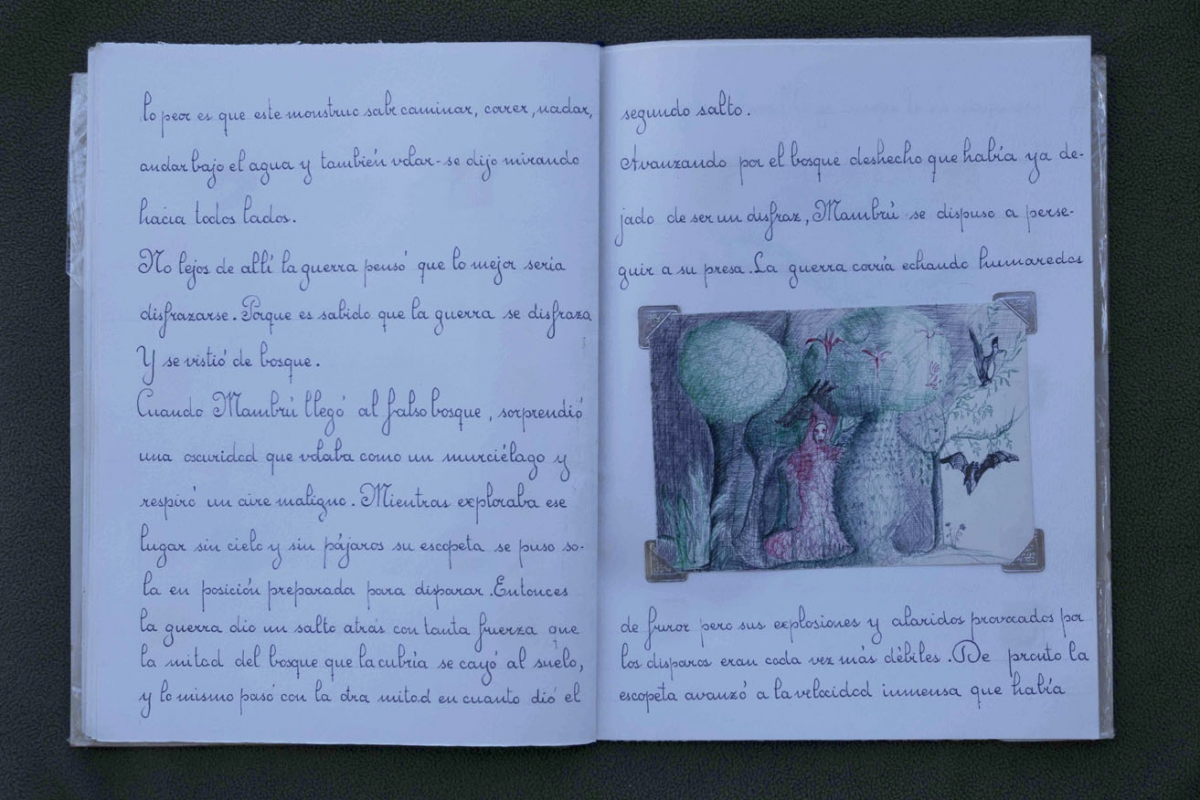 lo peor es que este monstruo sabe caminar, correr, nadar,
andar bajo el agua y también volar- se dijo mirando
hacia todos lados.
No lejos de allí la guerra pensó que lo mejor sería
disfrazarse. Porque es sabido que la guerra se disfraza
Y se vistió de bosque.
Cuando Mambrú llegó al falso bosque, sorprendió
una oscuridad que volaba como un murciélago y
respiró un aire maligno. Mientras exploraba ese
lugar sin cielo y sin pájaros su escopeta se puso so-
la en posición preparada para disparar. Entonces
la guerra dio un salto atrás con tanta fuerza que
la mitad del bosque que la cubría se cayó al suelo,
y lo mismo pasó con la otra mitad en cuanto dió el
segundo salto.
Avanzando por el bosque deshecho que había ya de-
jado de ser un disfraz, Mambrú se dispuso a perse-
guir a su presa. La guerra corría echando humaredas
de furor pero sus explosiones y alaridos provocados por
los disparos eran cada vez más débiles. De pronto la
escopeta avanzó a la velocidad inmensa que había